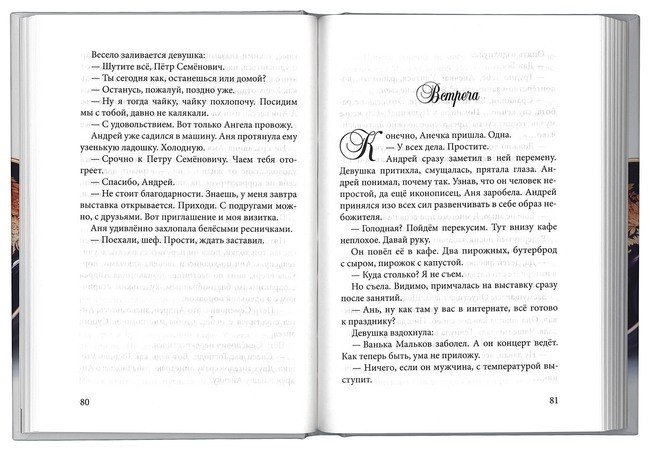 Весело заливается девушка:
— Шутите всё, Пётр Семёнович.
— Ты сегодня как, останешься или домой?
— Останусь, пожалуй, поздно уже.
— Ну я тогда чайку, чайку похлопочу. Посидим
мы с тобой, давно не калякали.
— С удовольствием. Вот только Ангела провожу.
Андрей уже садился в машину. Аня протянула ему
узенькую ладошку. Холодную.
— Срочно к Петру Семёновичу. Чаем тебя ото-
греет.
— Спасибо, Андрей.
— Не стоит благодарности. Знаешь, у меня завтра
выставка открывается. Приходи. С подругами мож-
но, с друзьями. Вот приглашение и моя визитка.
Аня удивлённо захлопала белёсыми ресничками.
— Поехали, шеф. Прости, ждать заставил.
80
Встреча
Конечно, Анечка пришла. Одна.
— У всех дела. Простите.
Андрей сразу заметил в ней перемену.
Девушка притихла, смущалась, прятала глаза. Ан-
дрей понимал, почему так. Узнав, что он человек не-
простой, да ещё иконописец, Аня заробела. Андрей
принялся изо всех сил развенчивать в себе образ не-
божителя.
— Голодная? Пойдём перекусим. Тут внизу кафе
неплохое. Давай руку.
Он повёл её в кафе. Два пирожных, бутерброд
с сыром, пирожок с капустой.
— Куда столько? Я не съем.
Но съела. Видимо, примчалась на выставку сразу
после занятий.
— Ань, ну как там у вас в интернате, всё готово
к празднику?
Девушка вздохнула:
— Ванька Мальков заболел. А он концерт ведёт.
Как теперь быть, ума не приложу.
— Ничего, если он мужчина, с температурой вы-
ступит.
81